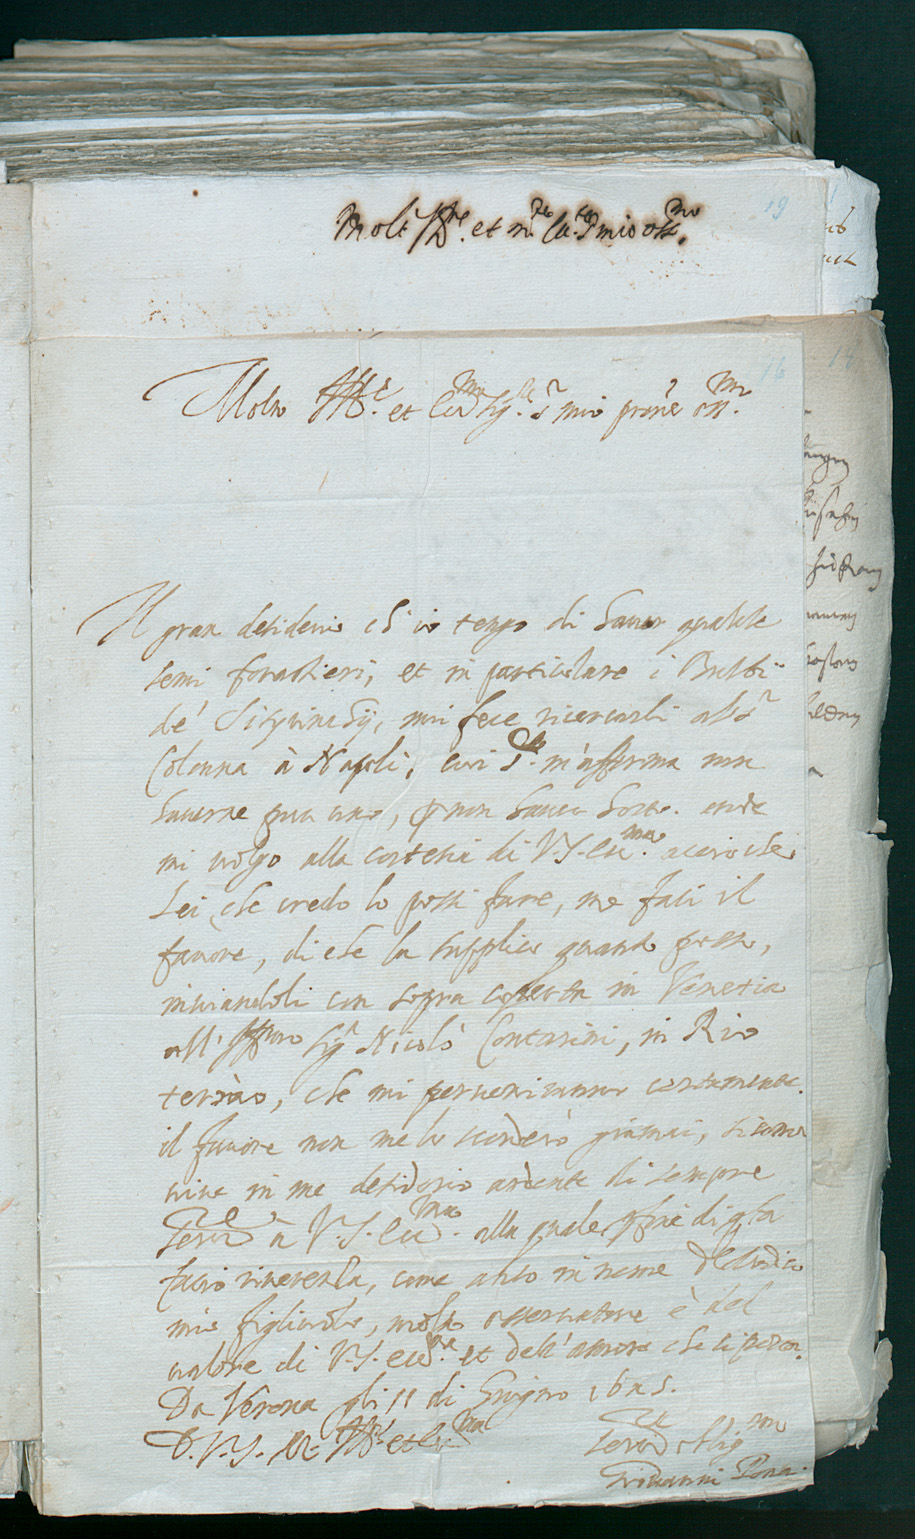 19
Molt Ill.re et m.to Ecc.te S. mio oss.mo
16
Molto Ill.re et Ecc.mo Sig.re S.r mio pron̄e oss.mo
Il gran desiderio ch'io tengo di hauer qualche
semi forastieri, et in particolare i Bulbi
de' Sisyrinchij, mi fece ricercarli al S.r
Colonna à Napoli, cui S. m'afferma non
hauerne pur uno, onde
mi uolgo alla cortesia di V.S. Ecc.ma accioche
Lei, che credo lo possi fare, me faci il
fauore, di che la supplico quanto posso,
inuiandoli con sopra coperta in Venetia
all' Ill.mo Sig.r Nicolò Contarini, in Rio
terrào, che mi perueniranno certamente.
il fauore non me lo scorderò giamai, si come
uiue in me desiderio ardente di sempre
seruir à V.S. Ecc.ma alla quale p fine di q.ta
facio riuerenza, come anco in nome
mio figliuolo, molto osseruatore è del
ualore di V.S. Ecc.ma et dell'amore che li porta.
Da Verona gli 11 di Giugno
D. V. S. M. Ill.re et Ecc.ma
Ser.re oblig.mo
Giouanni Pona.